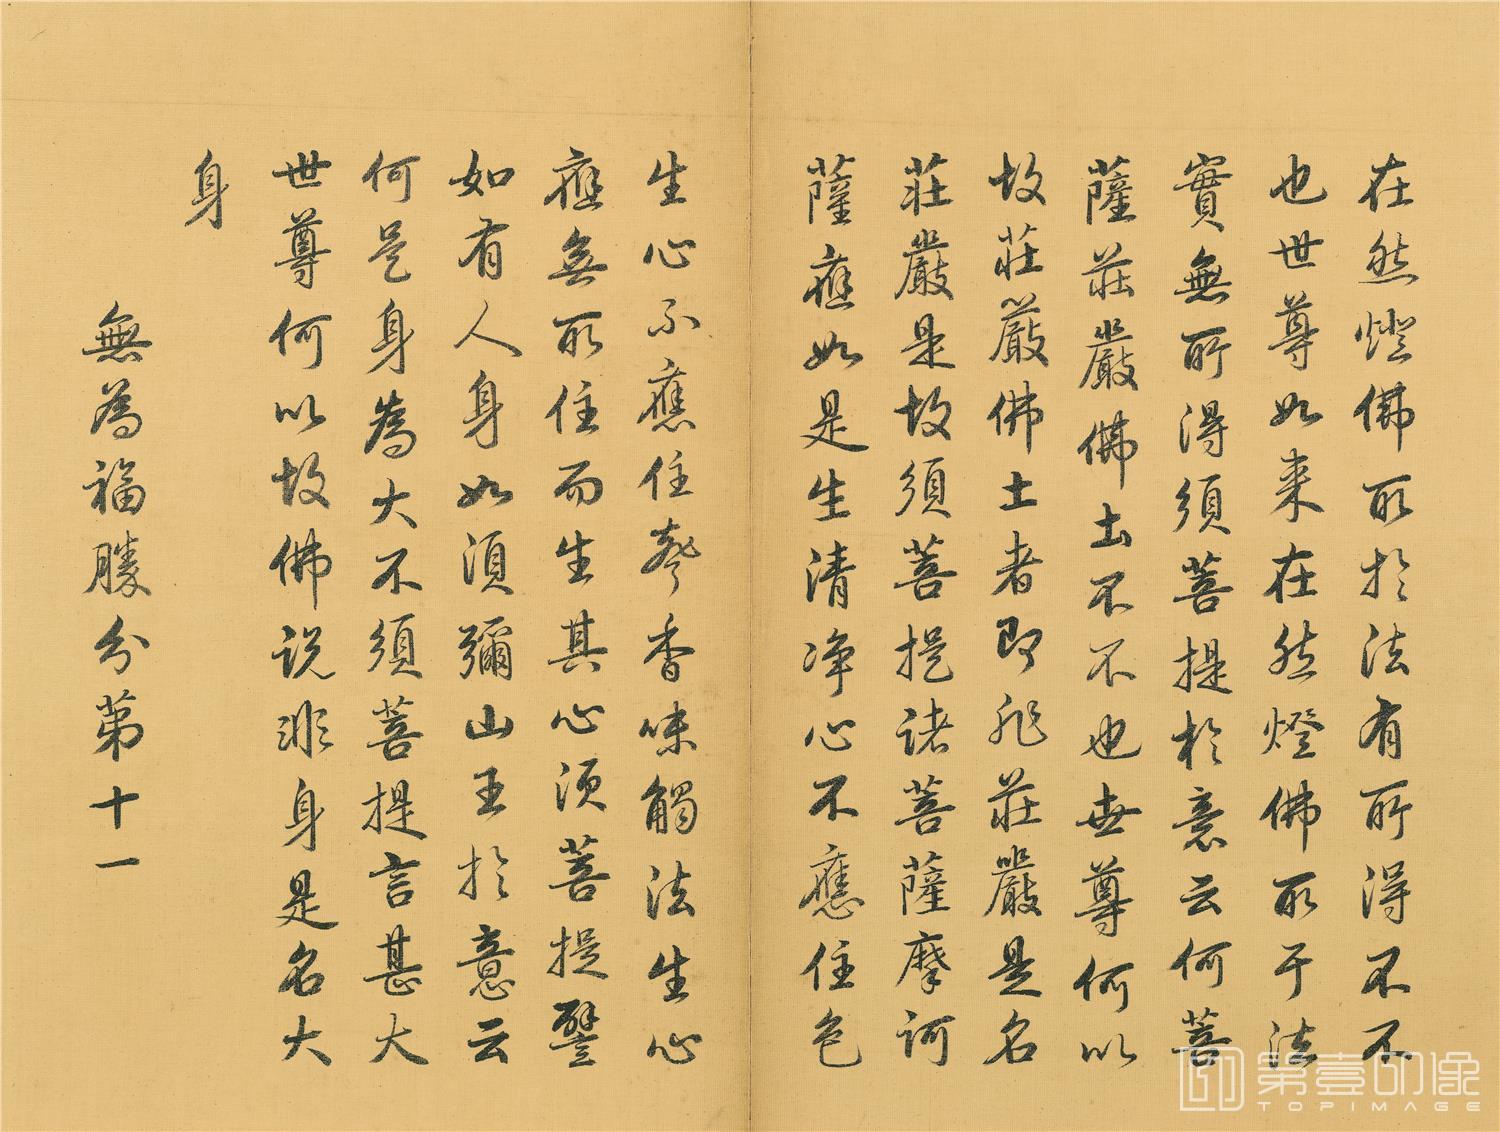 在然燈佛所於法有所得不不
也世尊如来在然燈佛所于法
實無所得須菩提於意云何菩
薩莊嚴佛土不不也世尊何以
故莊嚴佛土者即非莊嚴是名
莊嚴是故須菩提諸菩薩摩訶
薩應如是生清净心不應住色
生心不應住聲香味觸法生心
應無所住而生其心須菩提譬
如有人身如須彌山王於意云
何是身為大不須菩提言甚大
世尊何以故佛説非身是名大
身
無為福勝分第十一
第壹印像
TOPIMAGE